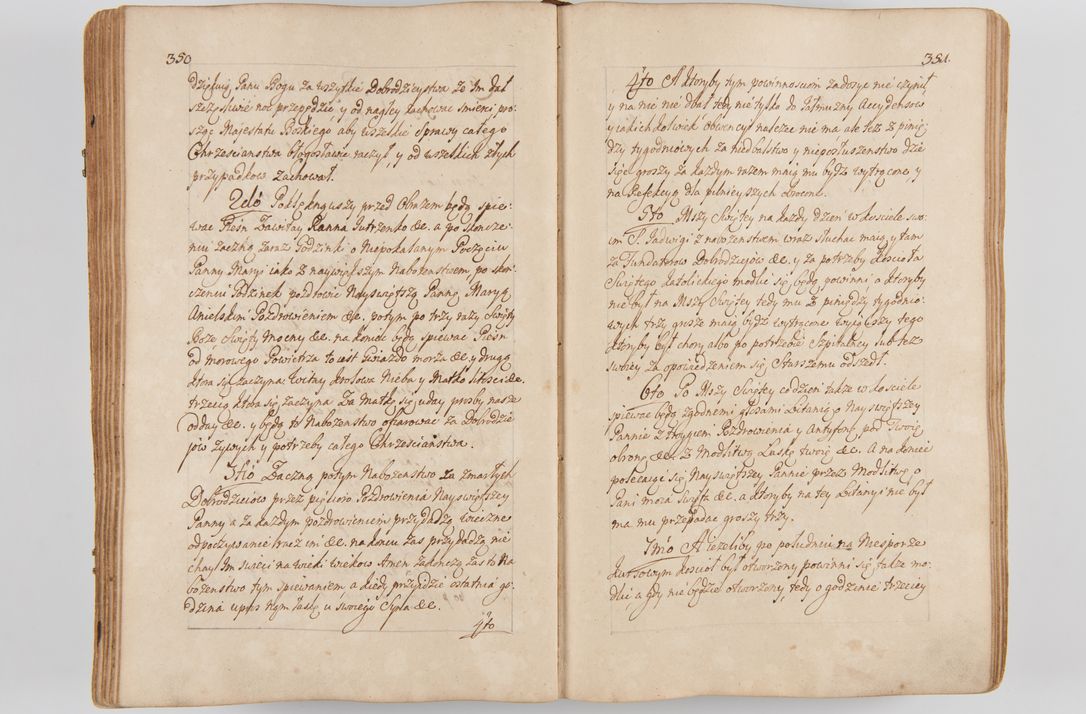 350
Dziękuiąc Panu Bogu za wszytkie Dobrodzieystwa że Im dał
szczęsliwie noc przepędzić, y od nagłey zachował śmierci pro-
sząc Majestatu Boskiego aby wszelkie sprawy całego
Chrześcianstwa błogosławić raczył, y od wszelkich złych
przypadkow zachował.
2do Poklęknąwszy przed Obrazem będą spie-
wać Piesn Zawitay Ranna Jutrzenko &c. a po skończe-
niu zaczną zaraz Godzinki o Niepokalanym Poczęciu
Panny Maryi iako z naywiększym Nabożenstwem, po skoń-
czeniu Godzinek pozdrowić Nayświętszą Pannę Maryą
Anielskim Pozdrowieniem &c. potym po trzy razy Swięty
Boże Swięty Mocny &c. na koniec będą spiewać Piesn
od morowego Powietrza to iest Gwiazdo morza &c. y drugą
ktora się zaczyna Witay Krolowa Nieba y Matko litości &c.
trzecią ktora się zaczyna Za Matkę się uday prozby nasze
odday &c. y będą to Nabożenstwo ofiarować za Dobrodzie
iow Zywych y potrzeby całego Chrześcianstwa.
3tio Zaczną potym Nabożenstwo za zmarłych
Dobrodzieiow przez pięcioro Pozdrowienia Nayświętszey
Panny a za każdym pozdrowieniem przydadzą wieczne
odpoczywanie racz im &c. na koncu zas przydadzą nie
chay Im swieci na wieki wiekow Amen zakończą zas to Na
bożenstwo tym spiewaniem, a kiedy przyidzie ostatnia go-
dzina uproś nam łaskę u swoiego Syna &c.
4to
351.
4to A ktoryby tym powinnosciom zadosyc nie czynił
y na nie nie dbał tedy nie tylko do Jałmużny Accydensow
y iakich kolwiek obwencyi należec nie ma ale też z pinię
dzy tygodniowych za niedbalstwo y nieposłuszenstwo dzie
sięc groszy za każdym razem maią mu bydz wytrącone y
na Refekcyą dla pilnieyszych obrocone.
5to Mszy Swiętey na każdy dzień w kosciele swo-
im S. Jadwigi z nabożenstwem wraz słuchac maią y tam
za Fundatorow Dobrodzieiow &c. y za potrzeby Koscioła
Swiętego Katolickiego modlic się będą powinni a ktoryby
nie był na Mszy Swiętey tedy mu z piniędzy tygodnio-
wych trzy grosze maią bydz wytrącone wyiąwszy tego
ktoryby był chory albo po potrzebie Szpitalney sub też
swoiey za opowiedzeniem się Starszemu odszedł.
6to Po Mszy Swiętey codzien także w kosciele
spiewac będą zgodnemi głosami Litanią o Nayświętszey
Pannie z troygiem Pozdrowienia y Antyfonę pod Twoię
obronę &c. z Modlitwą Łaskę twoię &c. A na koniec
polecaiąc się Nayświętszey Pannie przez Modlitwę o
Pani moia święta &c. a ktoryby na tey Litanyi nie był
ma mu przepadac groszy trzy.
7mo A ieżeliby po południu na Nieszporze
kursowym kosciół był otworzony powinni się także mo-
dlic, a gdy nie będzie otworzony, tedy o godzinie trzeciey